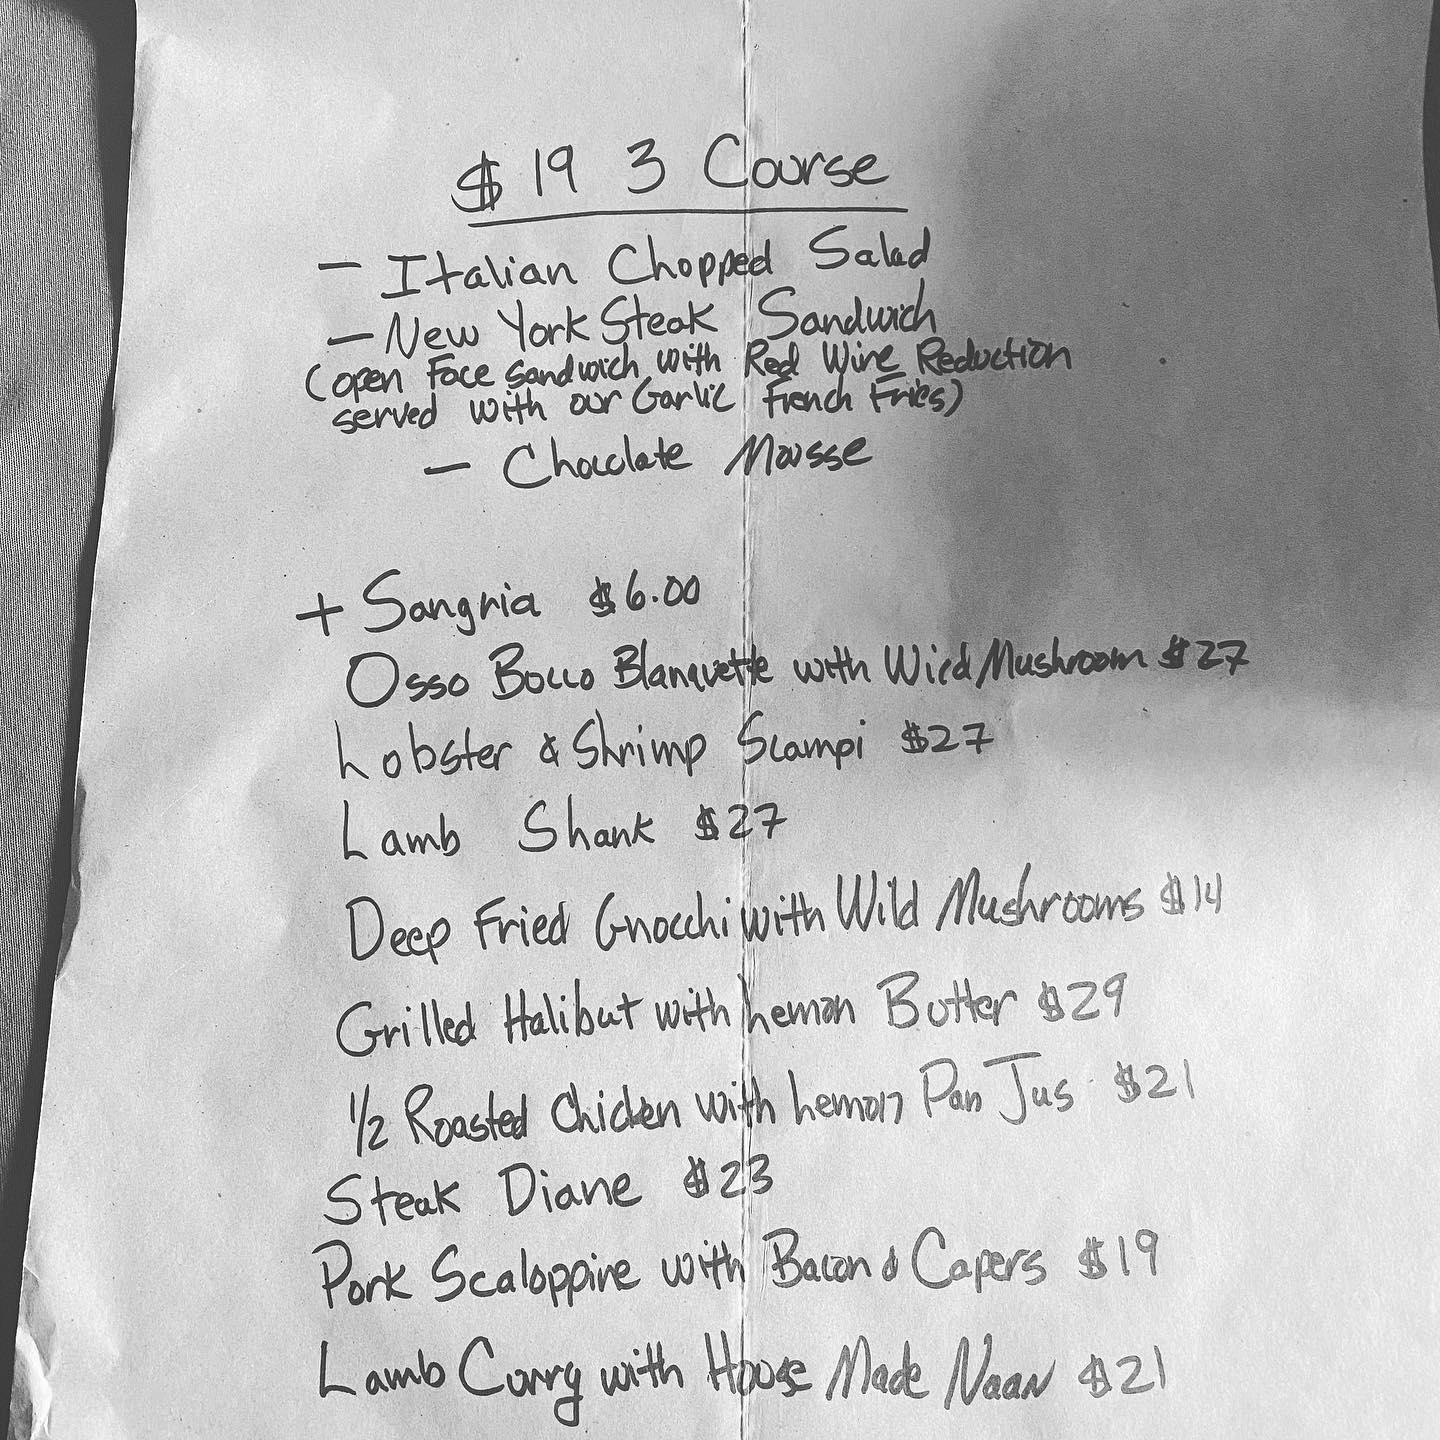 $19 3 Course
- Italian Chopped Salad
- New York Steak Sandwich
(open Face sandwich with Red Wine Reduction
served with our Garlic French Fries)
- Chocolate Mousse
+ Sangria $6.00
Osso Bocco Blanquette with Wild Mushroom $27
Lobster & Shrimp Scampi $27
Lamb Shank $27
Deep Fried Gnocchi with Wild Mushrooms $14
Grilled Halibut with Lemon Butter $29
1/2 Roasted Chicken with Lemon Pan Jus $21
Steak Diane $23
Pork Scaloppine with Bacon & Capers $19
Lamb Curry with House Made Naan $21